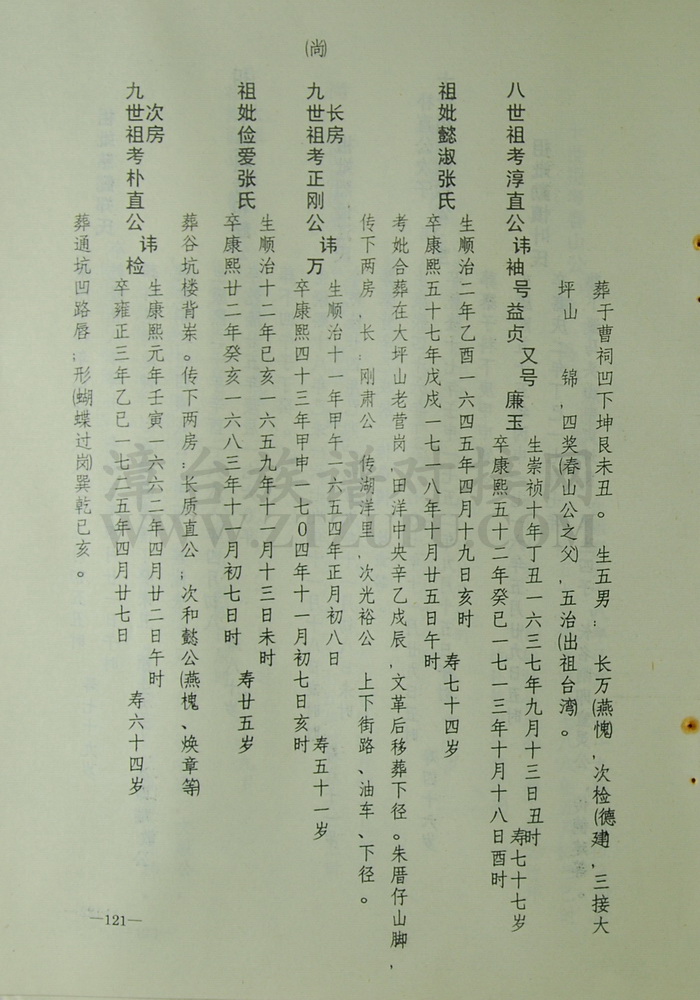 (尚)
葬于曹祠凹下坤艮未丑。 生五男: 长万(燕愧),次检(德建),三接大
坪山 锦,四奖(春山公之父),五治(出祖台湾)。
八世祖考淳直公讳袖号益贞又号廉玉
生崇祯十年丁丑一六三七年九月十三日丑时
卒康熙五十二年癸巳一七一三年十月十八日酉时
寿七十七岁
祖妣懿淑张氏
生顺治二年乙酉一六四五年四月十九日亥时
卒康熙五十七年戊戌一七一八年十月廿五日午时
寿七十四岁
考妣合葬在大坪山老营岗,田洋中央辛乙戌辰,文革后移葬下径。朱厝仔山脚,
传下两房,长:刚肃公 传湖洋里,次光裕公 上下街路、油车、下径。
长房
九世祖考正刚公讳万
生顺治十一年甲午一六五四年正月初八日
卒康熙四十三年甲申一七0四年十一月初七日亥时
寿五十一岁
祖妣俭爱张氏
生顺治十二年已亥一六五九年十一月十三日未时
卒康熙廿二年癸亥一六八三年十一月初七日时
寿廿五岁
葬谷坑楼背岽。传下两房:长质直公;次和懿公(燕槐、焕章等)
次房
九世祖考朴直公讳检
生康熙元年壬寅一六六二年四月廿二日午时
卒雍正三年乙已一七二五年四月廿七日
寿六十四岁
葬通坑凹路唇;形(蝴蝶过岗)巽乾已亥。
—121—
漳台族谱对接网
WWW.ZTZUPU.COM